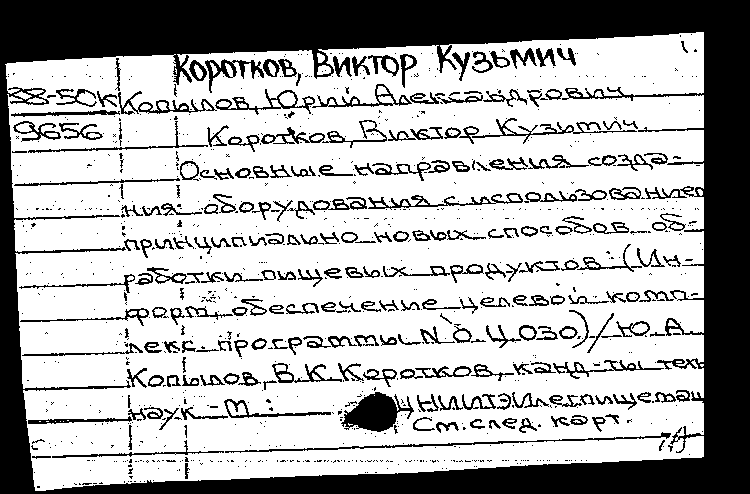 1.
Коротков, Виктор Кузьмич
38-50К Копылов, Юрий Александрович,
9656 Коротков, Виктор Кузьмич.
Основные направления созда-
ния оборудования с использованием
принципиально новых способов об-
работки пищевых продуктов: (Ин-
форм. обеспечение целевой комп-
лекс. программы N О.Ц.030) / Ю.А.
Копылов, В.К. Коротков, канд-ты техн
наук - М.: ЦНИИТЭИлегпищемаш
См. след. карт.